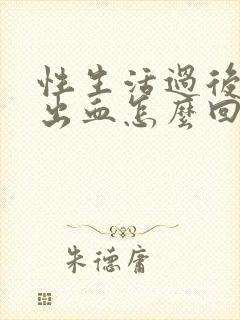 性生活過後
出血怎麼回
朱德庸